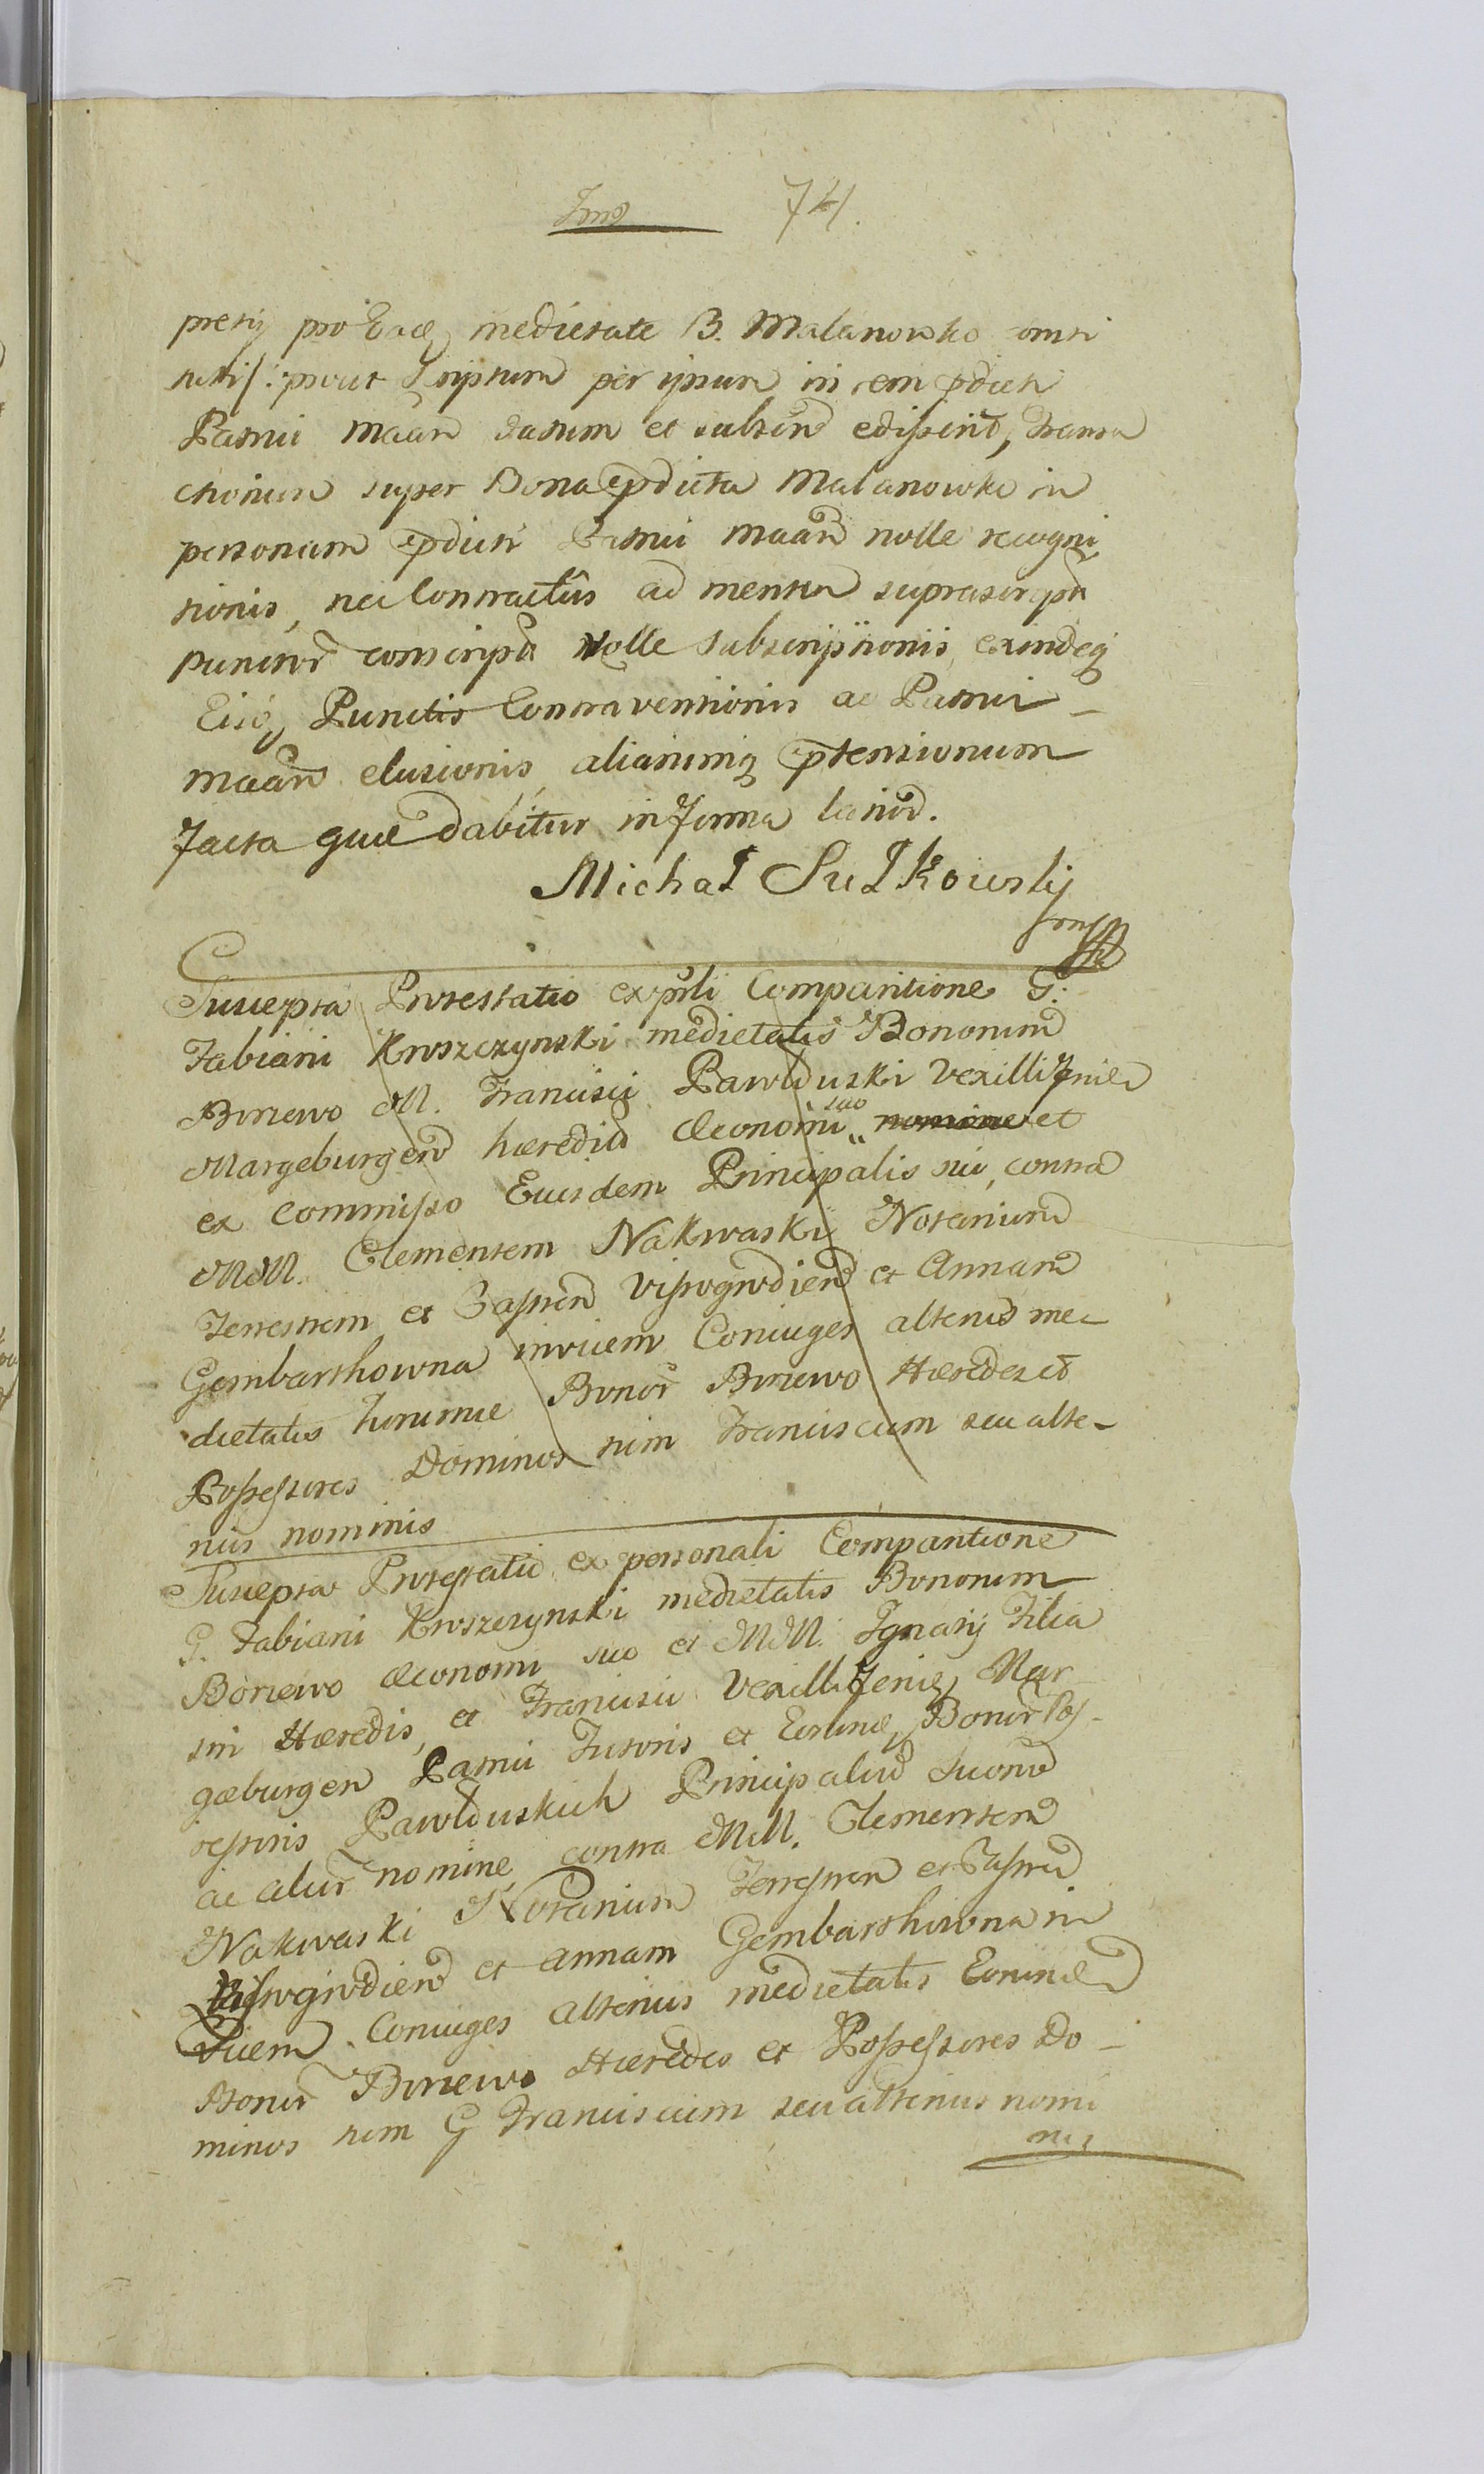 74.
pretij pro Eadq medietate B. Malanowko consti
tuti/: prout Scriptum per ipsum in rem pdicti
Patrui maan datum et subscrib edisserit, Transa
ctionum super Bona epdicta Malanowko in
personam epdicti Patrui maan nolle recogni
tionis, nec Contractûs ad mentem suprascript
punctor conscripti Nolle Subscriptionis, exindeq
Eisdq Punctis Contraventionis ac Patrui
maan elusionis aliarumq eptensionum
facta quae dabitur in forma latiori.
Michał Sułkowsky
Suscepta Protestatio ex psnli Comparitione G.
Fabiani Kroszczynski medietatis Bonorum
Boriewo M. Francisci Pawłduski Vexilliferidae
Margeburgen haeredis Oeconomi suo nomine et
ex Commisso Eiusdem Principalis sui, contra
MM. Clementem Nakwaski Notarium
Terrestrem et Castren Vissogrodien et Annam
Gembarthowna invicem Coniuges alterius me-
dietatis horumce Bonor Boriewo Haeredes et
Possessores Dominos tim Franciscum seu alte-
rius nominis
Suscepta Protestatio ex personali Comparitione
G. Fabiani Kroszczynski medietatis Bonorum
Boriewo oeconomi suo et MM. Ignatij Filia
stri Haeredis, et Francisci Vexilliferidae Mar
gaeburgen Patrui Tutoris et Eorundq Bonor Pos-
sessoris Pawłduskich Principalium Suorum
ac alior nomine, contra MM. Clementem
Nakwaski Notarium Terrestren et Castren
Vissogrodien et Annam Gembarthowna in
vicem Coniuges alterius medietatis Eorunde
Bonor Boriewo Haeredes et Possessores Do-
minos tim G Franciscum seu alterius nomi
nis